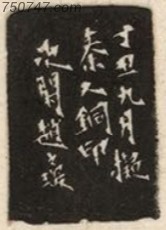 750747.com
丁丑九月擬
秦人銅印
次閒趙之琛